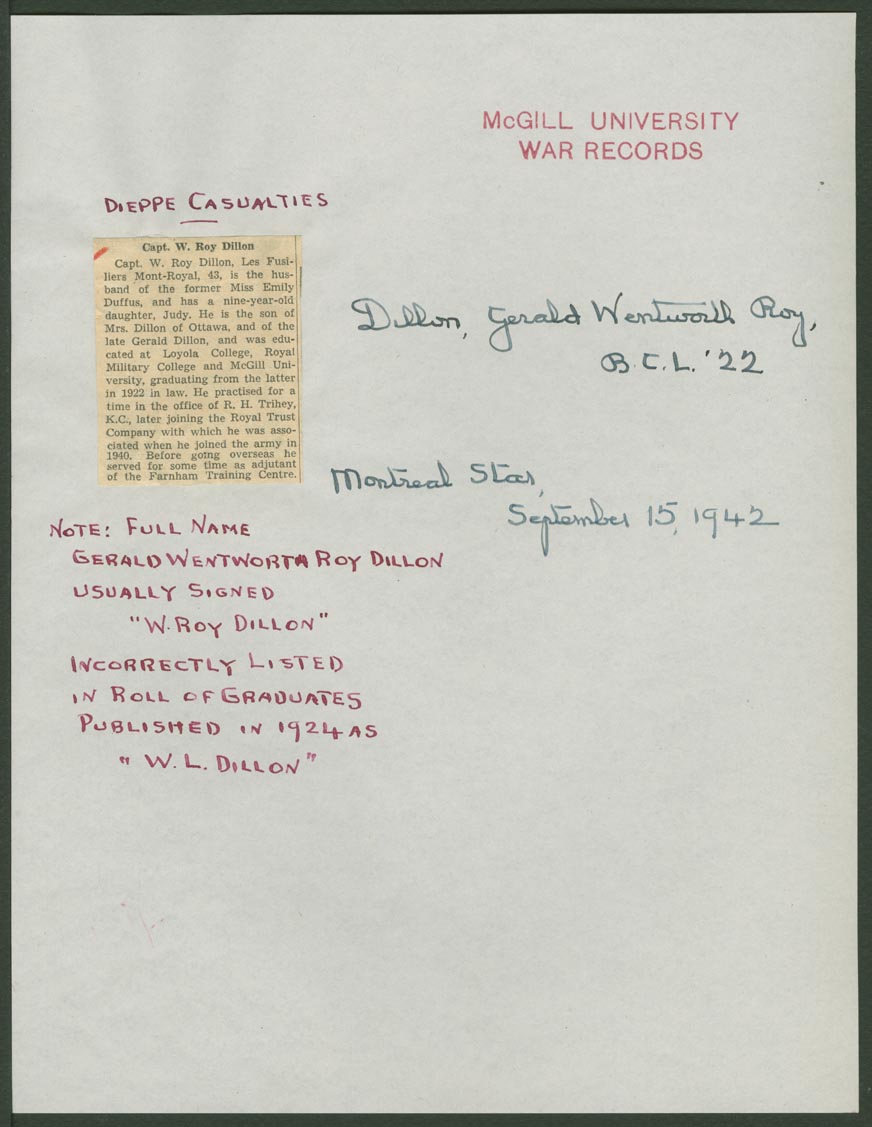 McGILL UNIVERSITY
WAR RECORDS
DIEPPE CASUALTIES
Capt. W. Roy Dillon
Capt. W. Roy Dillon, Les Fusi-
liers Mont-Royal, 43, is the hus-
band of the former Miss Emily
Duffus, and has a nine-year-old
daughter, Judy. He is the son of
Mrs. Dillon of Ottawa, and of the
late Gerald Dillon, and was edu-
cated at Loyola College, Royal
Military College and McGill Uni-
versity, graduating from the latter
in 1922 in law. He practised for a
time in the office of R. H. Trihey,
K.C., later joining the Royal Trust
Company with which he was asso-
ciated when he joined the army in
1940. Before going overseas he
served for some time as adjutant
of the Farnham Training Centre.
Dillon, Gerald Wentworth Roy,
B.C.L. '22
Montreal Star,
September 15, 1942
NOTE: FULL NAME
GERALD WENTWORTH ROY DILLON
USUALLY SIGNED
"W. ROY DILLON"
INCORRECTLY LISTED
IN ROLL OF GRADUATES
PUBLISHED IN 1924 AS
"W. L. DILLON"